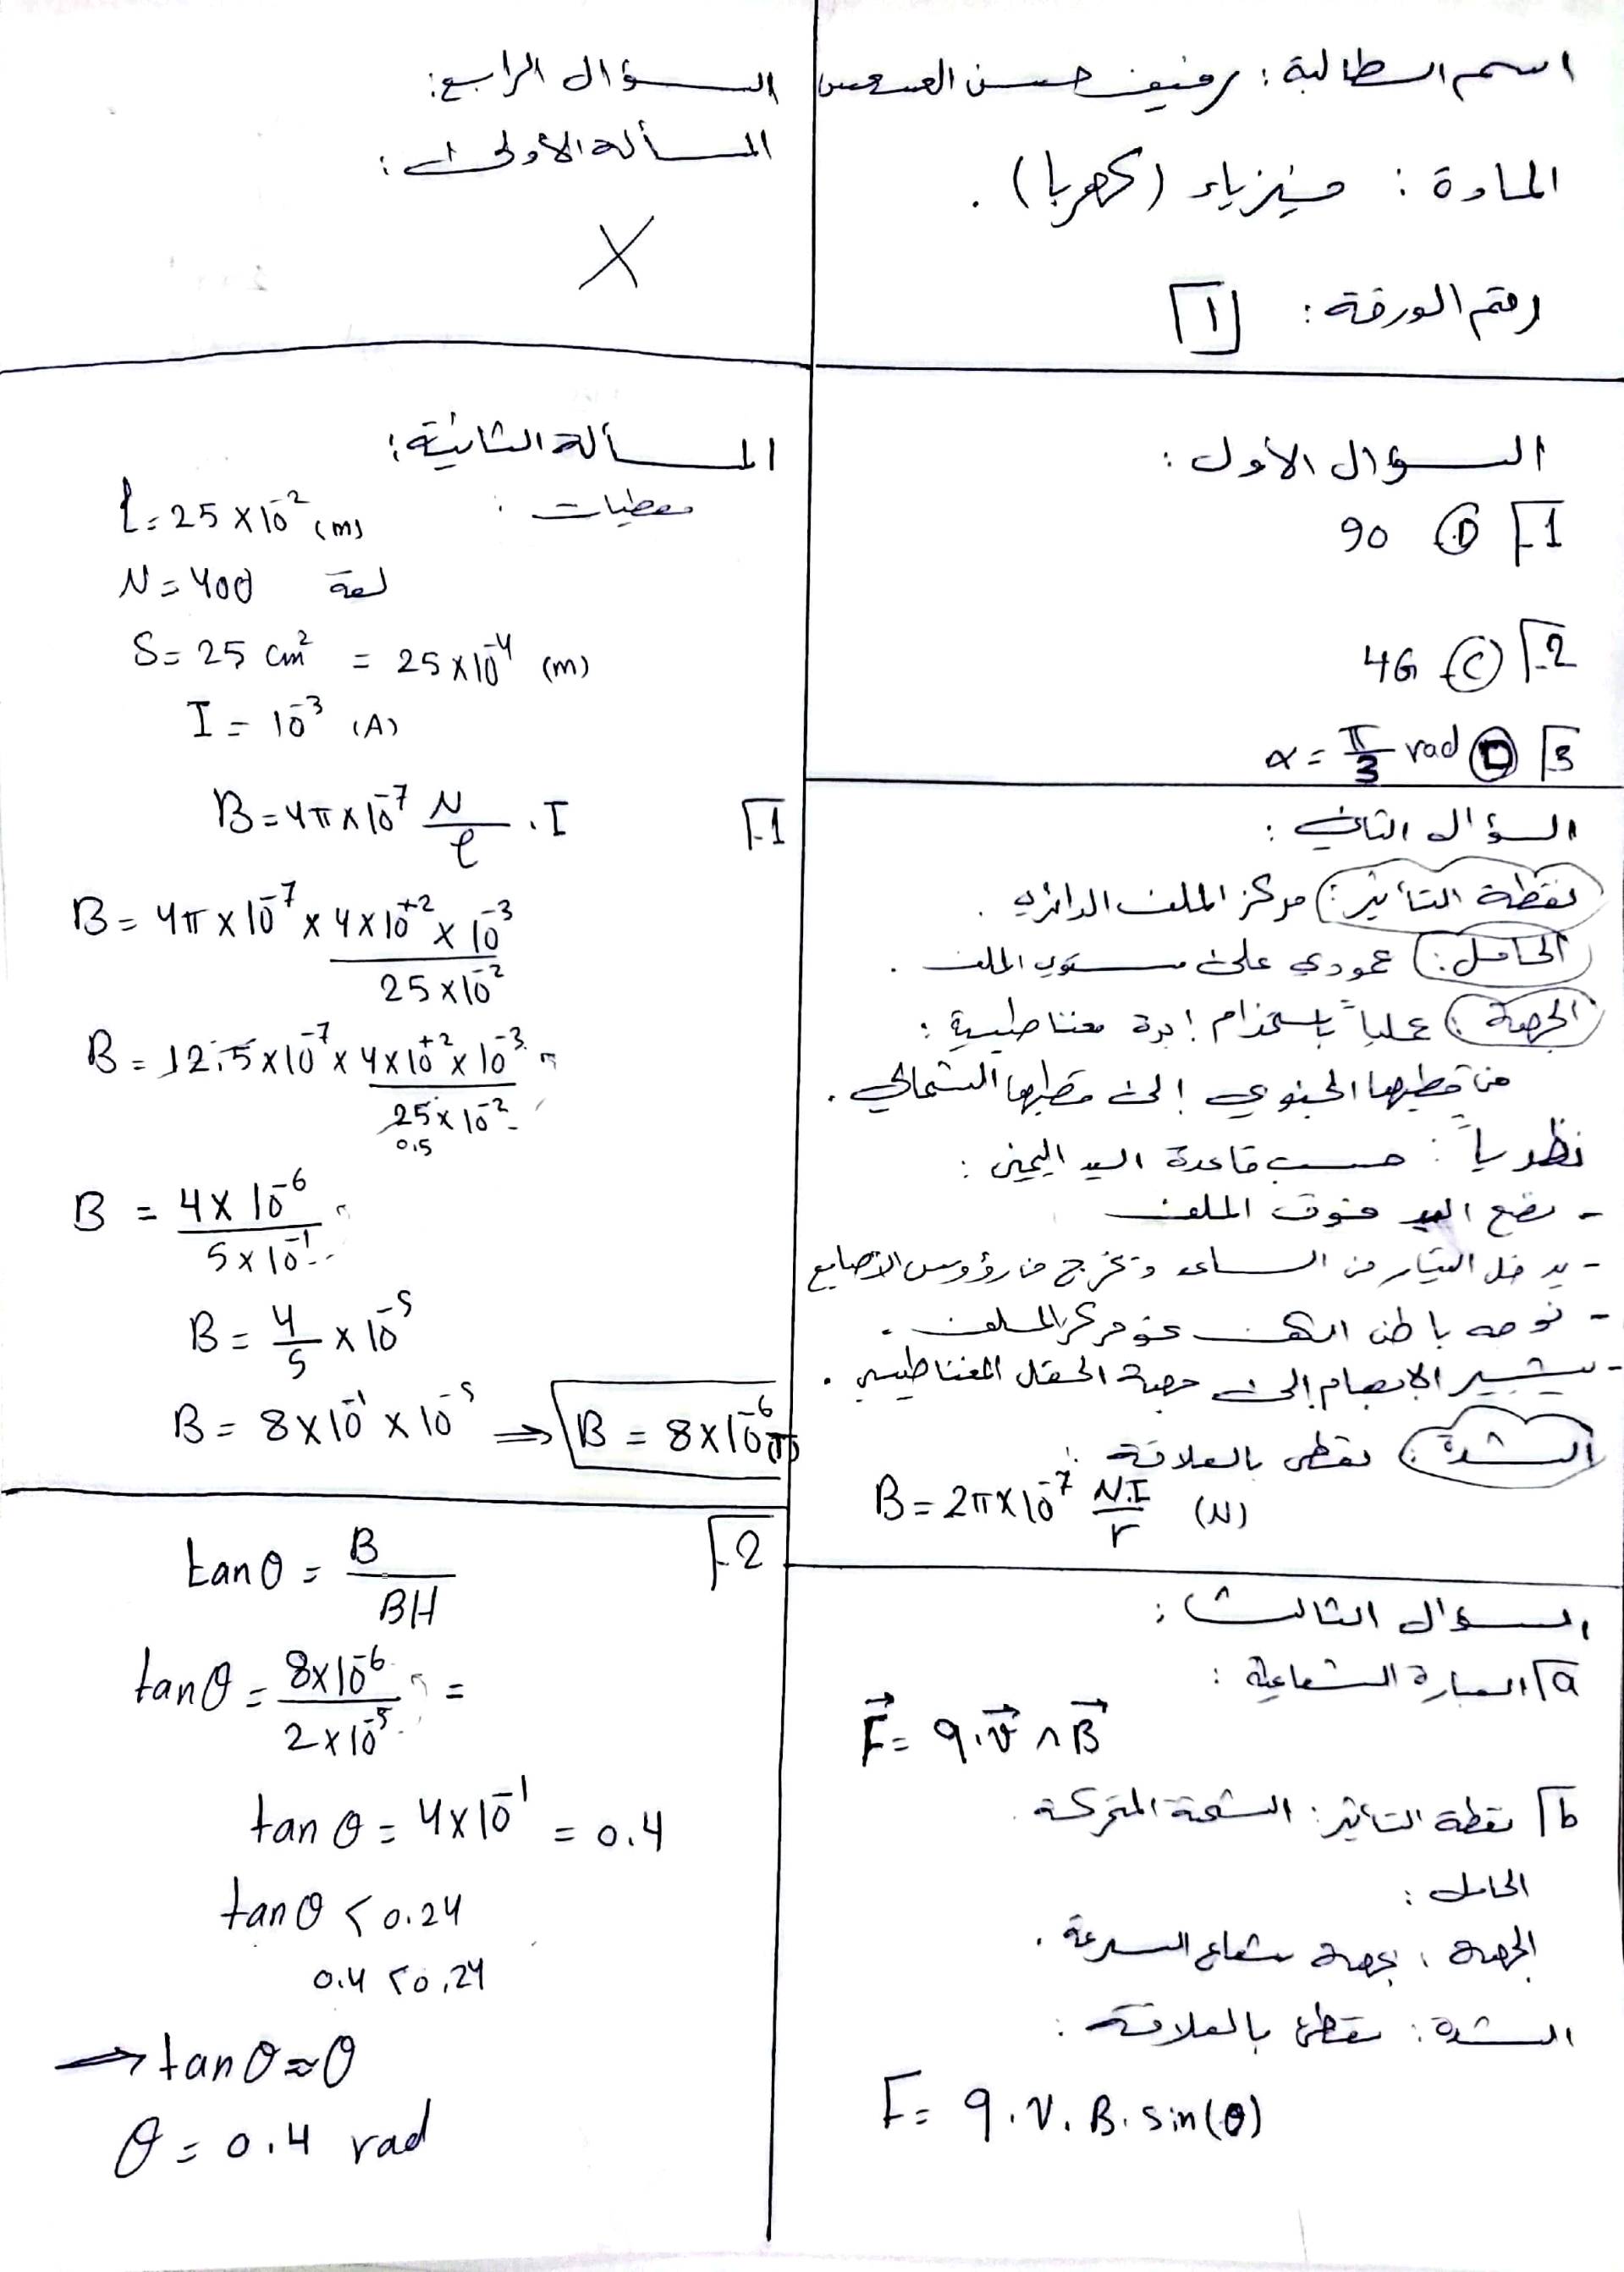 اسم الطالبة : رهنيف حسن العسعس
المادة : فيزياء (كهربا) .
رقم الورقة : 1
السؤال الأول :
1- D 90
2- C 4G
3- D α = π/3 rad
السؤال الثاني :
نقطة التأثير : مركز الملف الدائري .
الحامل : عمودي على مستوي الملف .
الجهة : عملياً باستخدام إبرة مغناطيسية :
من قطبها الجنوبي إلى قطبها الشمالي .
نظرياً : حسب قاعدة اليد اليمنى :
- نضع اليد فوق الملف
- يدخل التيار من الساعد وتخرج من رؤوس الأصابع
- نوجه باطن الكف نحو مركز الملف .
- يشير الابهام إلى جهة الحقل المغناطيسي .
الشدة : تعطى بالعلاقة :
B = 2π×10⁻⁷ N.I/r (N)
السؤال الثالث :
a العبارة الشعاعية :
F⃗ = q.v⃗ ∧ B⃗
b نقطة التأثير : الشحنة المتحركة .
الحامل :
الجهة : بجهة شعاع السرعة .
الشدة : تعطى بالعلاقة :
F = q.v.B.sin(θ)
السؤال الرابع :
المسألة الأولى :
X
المسألة الثانية :
معطيات :
ℓ = 25×10⁻² (m)
N = 400 لفة
S = 25 cm² = 25×10⁻⁴ (m)
I = 10⁻³ (A)
1- B = 4π×10⁻⁷ N/ℓ . I
B = 4π×10⁻⁷ × 4×10⁺² × 10⁻³ / 25×10⁻²
B = 12.5×10⁻⁷ × 4×10⁺² × 10⁻³ / 25×10⁻²
0.5
B = 4×10⁻⁶ / 5×10⁻¹
B = 4/5 × 10⁻⁵
B = 8×10⁻¹ × 10⁻⁵ ⇒ B = 8×10⁻⁶ (T)
2- tanθ = B/BH
tanθ = 8×10⁻⁶ / 2×10⁻⁵ =
tanθ = 4×10⁻¹ = 0.4
tanθ < 0.24
0.4 < 0.24
⇒ tanθ ≈ θ
θ = 0.4 rad